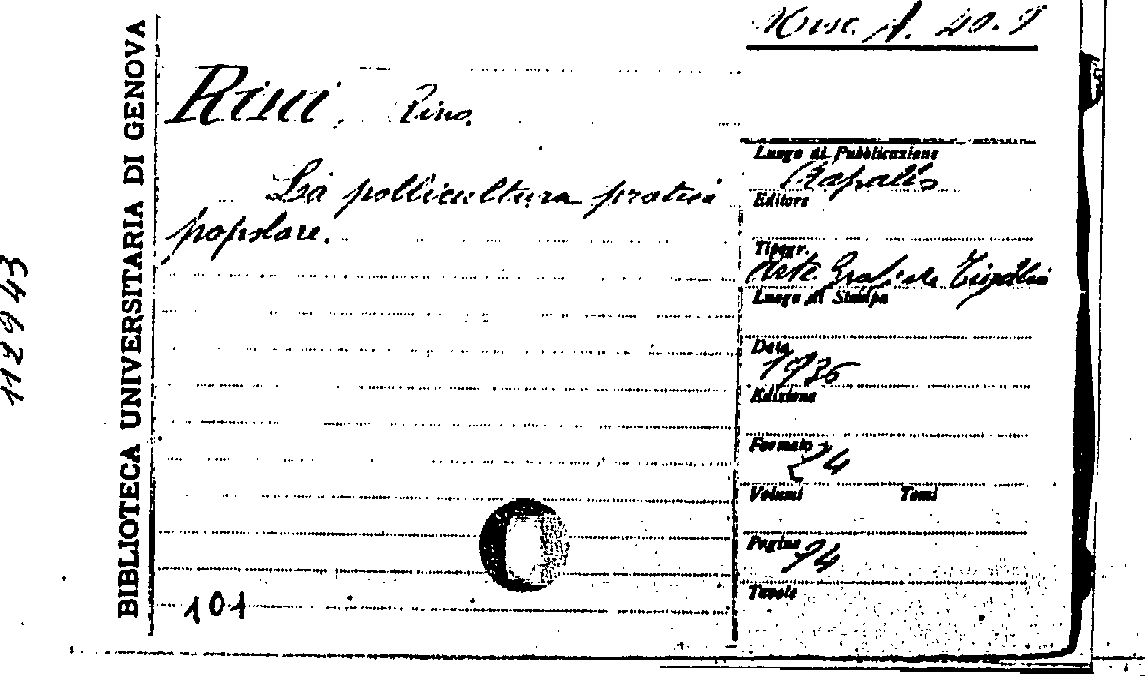 Misc. A. 40.9
BIBLIOTECA UNIVERSITARIA DI GENOVA
112943
Rini, Rino.
La pollicultura pratica
popolare.
101
Luogo di Pubblicazione
Rapallo
Editore
Tipogr.
Arti Grafiche Tigullio
Luogo di Stampa
Data
1936
Edizione
Formato
24
Volumi Tomi
Pagine
94
Tavole